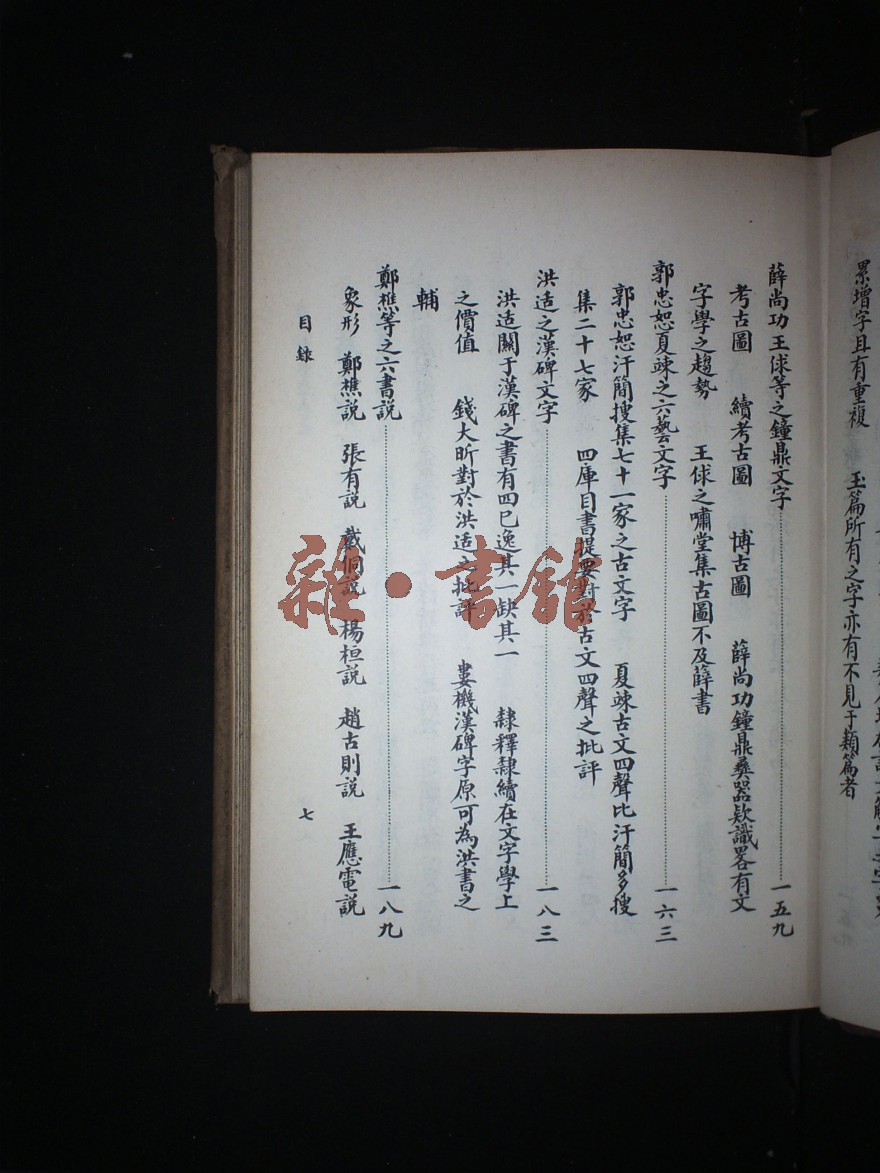 累增字且有重複　玉篇所有之字亦有不見于類篇者
薛尚功王俅等之鐘鼎文字……一五九
考古圖　續考古圖　博古圖　薛尚功鐘鼎彝器欵識畧有文
字學之趨勢　王俅之嘯堂集古圖不及薛書
郭忠恕夏竦之六藝文字……一六三
郭忠恕汗簡搜集七十一家之古文字　夏竦古文四聲比汗簡多搜
集二十七家　四庫目書提要對於古文四聲之批評
洪适之漢碑文字……一八三
洪适關于漢碑之書有四已逸其一缺其一　隸釋隸續在文字學上
之價值　錢大昕對於洪适之批評　婁機漢碑字原可為洪書之
輔
鄭樵等之六書説……一八九
象形　鄭樵説　張有説　戴侗説　楊桓説　趙古則説　王應電説
目錄
七
雜·書館